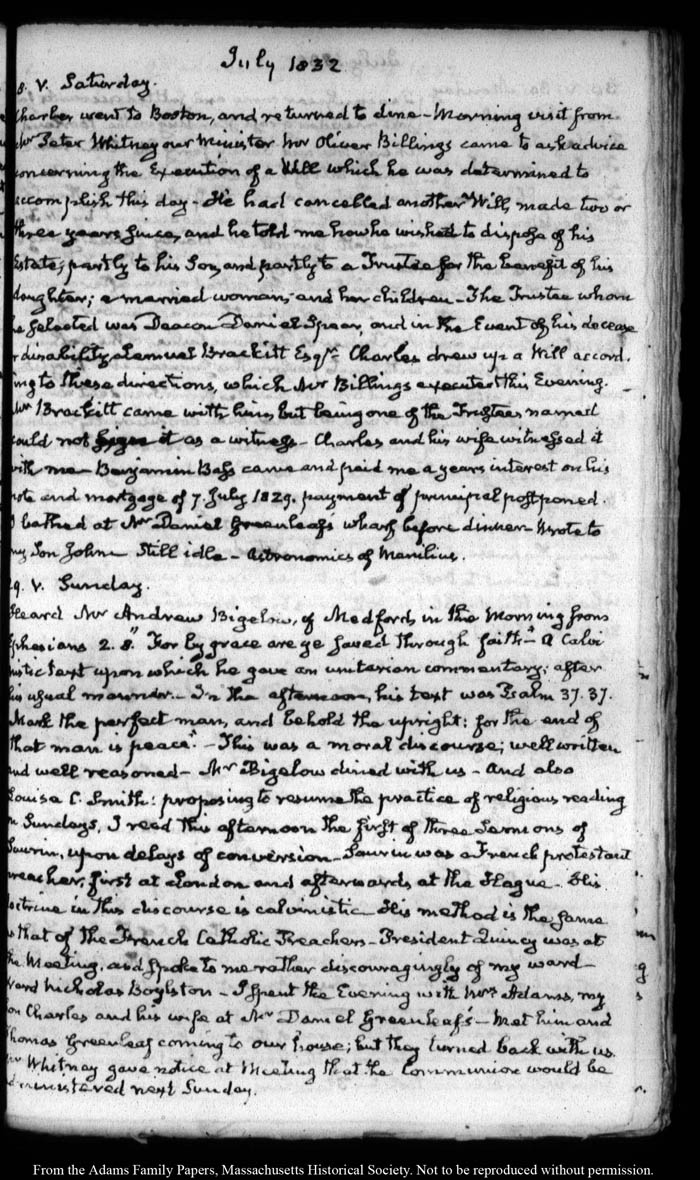 July 1832
8. V. Saturday.
Charles went to Boston, and returned to dine – Morning visit from
Mr Peter Whitney our Minister Mr Oliver Billings came to ask advice
concerning the Execution of a Will which he was determined to
accomplish this day – He had cancelled another Will, made two or
three years since, and he told me how he wished to dispose of his
Estate; partly to his Son, and partly to a Trustee for the benefit of his
daughter; a married woman, and her children – The Trustee whom
he selected was Deacon Daniel Spear, and in the Event of his decease
or disability Lemuel Brackett Esqr. Charles drew up a Will accord.
ing to these directions, which Mr Billings executed this Evening.
Mr Brackett came with him, but being one of the Trustees named
could not sign it as a witness – Charles and his wife witnessed it
with me – Benjamin Bass came and paid me a years interest on his
note and mortgage of 7. July 1829. payment of principal postponed.
I bathed at Mr Daniel Greenleaf's wharf before dinner – Wrote to
my Son John – Still idle – Astronomics of Manilius.
29. V. Sunday.
Heard Mr Andrew Bigelow, of Medford, in the Morning from
Ephesians 2. 8. "For by grace are ye saved through faith" – a Calvi
nistic text upon which he gave an unitarian commentary; after
his usual manner. – In the afternoon, his text was Psalm 37. 37.
Mark the perfect man, and behold the upright: for the end of
that man is peace". – This was a moral discourse; well written
and well reasoned – Mr Bigelow dined with us – And also
Louisa C. Smith: proposing to resume the practice of religious reading
on Sundays, I read this afternoon the first of three Sermons of
Saurin, upon delays of conversion – Saurin was a French protestant
preacher, first at London and afterwards at the Hague – His
doctrine in this discourse is calvinistic – His method is the same
as that of the French Catholic Preachers – President Quincy was at
the Meeting, and spoke to me rather discouragingly of my ward –
Ward Nicholas Boylston – I spent the Evening with Mrs Adams, my
son Charles and his wife at Mr Daniel Greenleaf's – Met him and
Thomas Greenleaf coming to our house; but they turned back with us.
Mr Whitney gave notice at Meeting that the Communion would be
administered next Sunday.
From the Adams Family Papers, Massachusetts Historical Society. Not to be reproduced without permission.